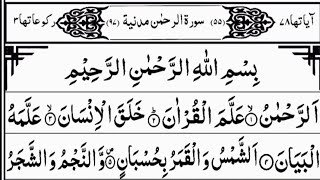 آیاتها ۷۸ (۵۵) سورة الرحمٰن مدنية (۹۷) رکوعاتها ۳
بِسْمِ اللّٰهِ الرَّحْمٰنِ الرَّحِیْمِ
اَلرَّحْمٰنُ ۙ۱ عَلَّمَ الْقُرْاٰنَ ؕ۲ خَلَقَ الْاِنْسَانَ ۙ۳ عَلَّمَهُ
الْبَیَانَ ۴ اَلشَّمْسُ وَ الْقَمَرُ بِحُسْبَانٍ ۪۵ وَّ النَّجْمُ وَ الشَّجَرُ